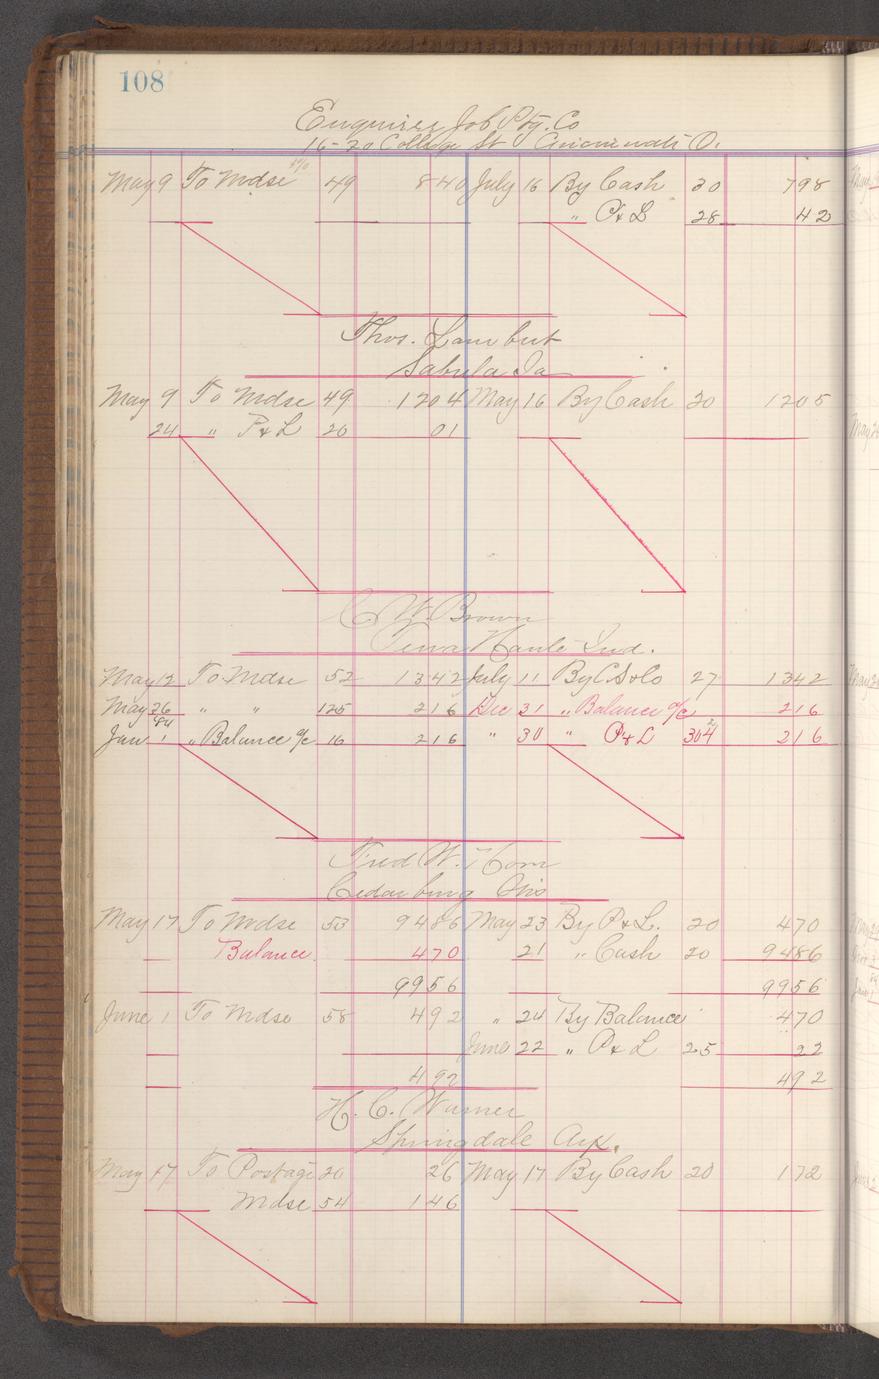 108
Enquirer Job Ptg. Co
16-20 College St Cincinnati O.
May 9 To Mdse 49 840 July 16 By Cash 30 798
" P&L 28 42
Thos. Lambert
Sabula Ia
May 9 To Mdse 49 1204 May 16 By Cash 20 1205
24 " P&L 20 01
C W. Brown
Terra Haute Ind.
May 12 To Mdse 52 1342 July 11 By C S & Co 27 1342
May 26 " " 125 216 Dec 31 " Balance a/c 216
84
Jan 1 " Balance a/c 16 216 " 30 " P&L 304 216
Fred W. Horn
Cedarburg Wis
May 17 To Mdse 53 9486 May 23 By P&L. 20 470
Balance 470 21 " Cash 20 9486
9956 9956
June 1 To Mdse 58 492 " 24 By Balance 470
June 22 " P&L 25 22
492 492
H. C. Warner
Springdale Ark.
May 17 To Postage 20 26 May 17 By Cash 20 172
Mdse 54 146